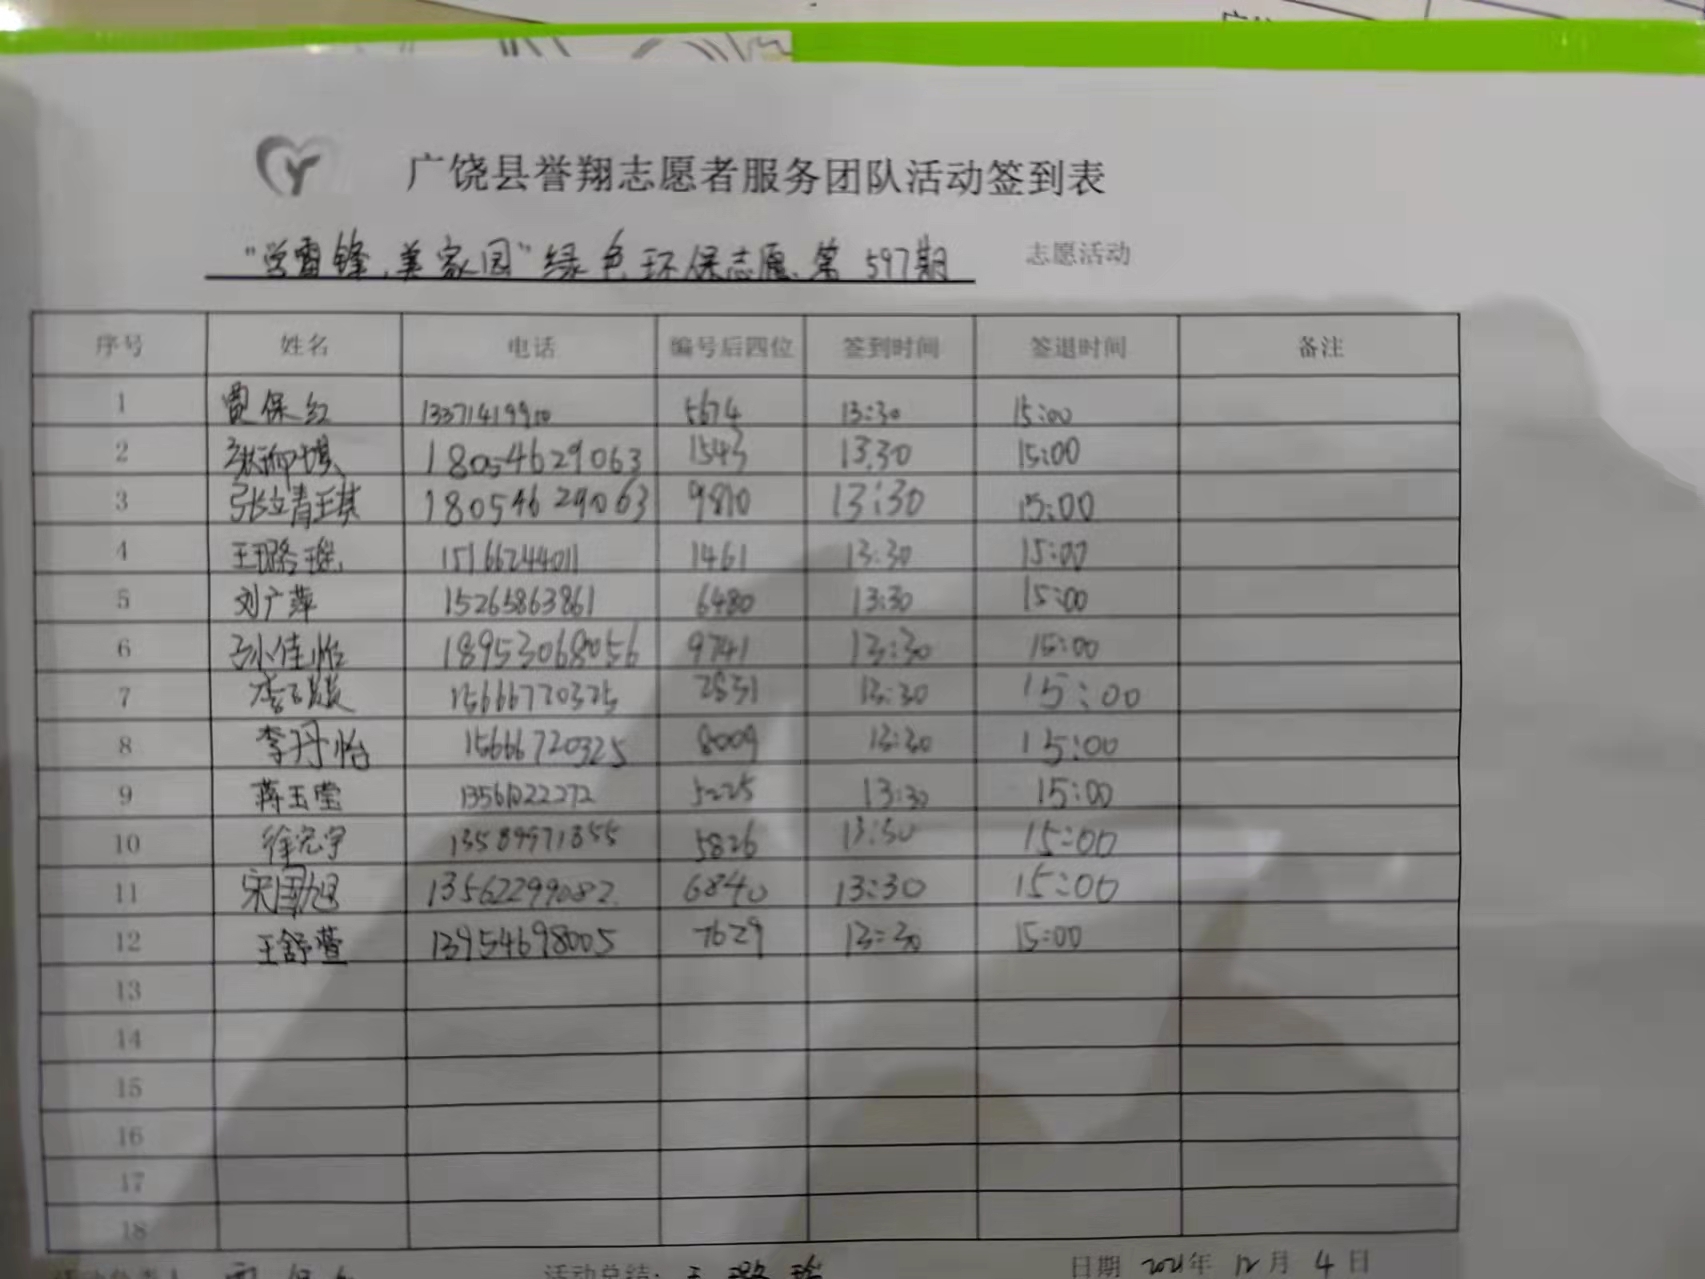 广饶县誉翔志愿者服务团队活动签到表
“学雷锋、美家园”绿色环保志愿、第597期 志愿活动
序号 姓名 电话 编号后四位 签到时间 签退时间 备注
1 贾保红 13371419910 5674 13:30 15:00
2 18054629063 1543 13:30 15:00
3 张立青 18054629063 9810 13:30 15:00
4 王璐瑶 15166244011 1461 13:30 15:00
5 刘广萍 15265863861 6480 13:30 15:00
6 孙佳怡 18953068056 9741 13:30 15:00
7 15666720325 2531 13:30 15:00
8 李丹怡 15666720325 8009 13:30 15:00
9 蒋玉莹 5225 13:30 15:00
10 徐完宇 13589971355 5826 13:30 15:00
11 宋国旭 13562299082 6840 13:30 15:00
12 王舒萱 13954698005 7629 13:30 15:00
13
14
15
16
17
18
活动总结: 日期 2021年 12月 4日